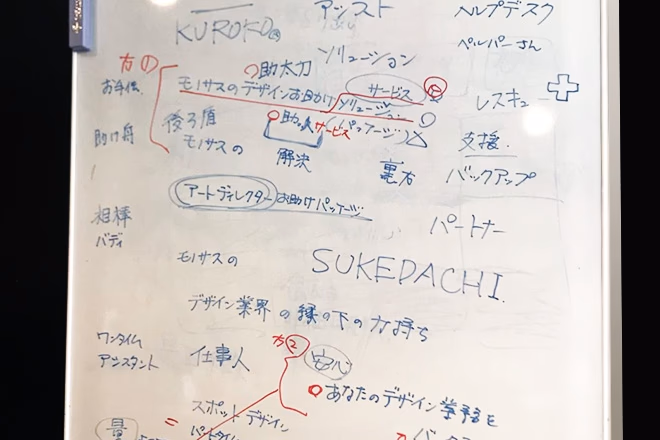 KUROKO
アシスト
ヘルプデスク
ソリューション
ヘルパーさん
方の
助太刀
お手伝
モノサスのデザインお助けソリューション
サービス
レスキュー
助け舟
後ろ盾
助っ人サービス
(パッケージ)
モノサスの
解決
裏方
支援
バックアップ
アートディレクターお助けパッケージ
相棒
バディ
パートナー
モノサスの
SUKEDACHI
デザイン業界の縁の下の力持ち
ワンタイム
アシスタント
仕事人
安心
あなたのデザイン業務を
スポットデザイン
パートタイム
量